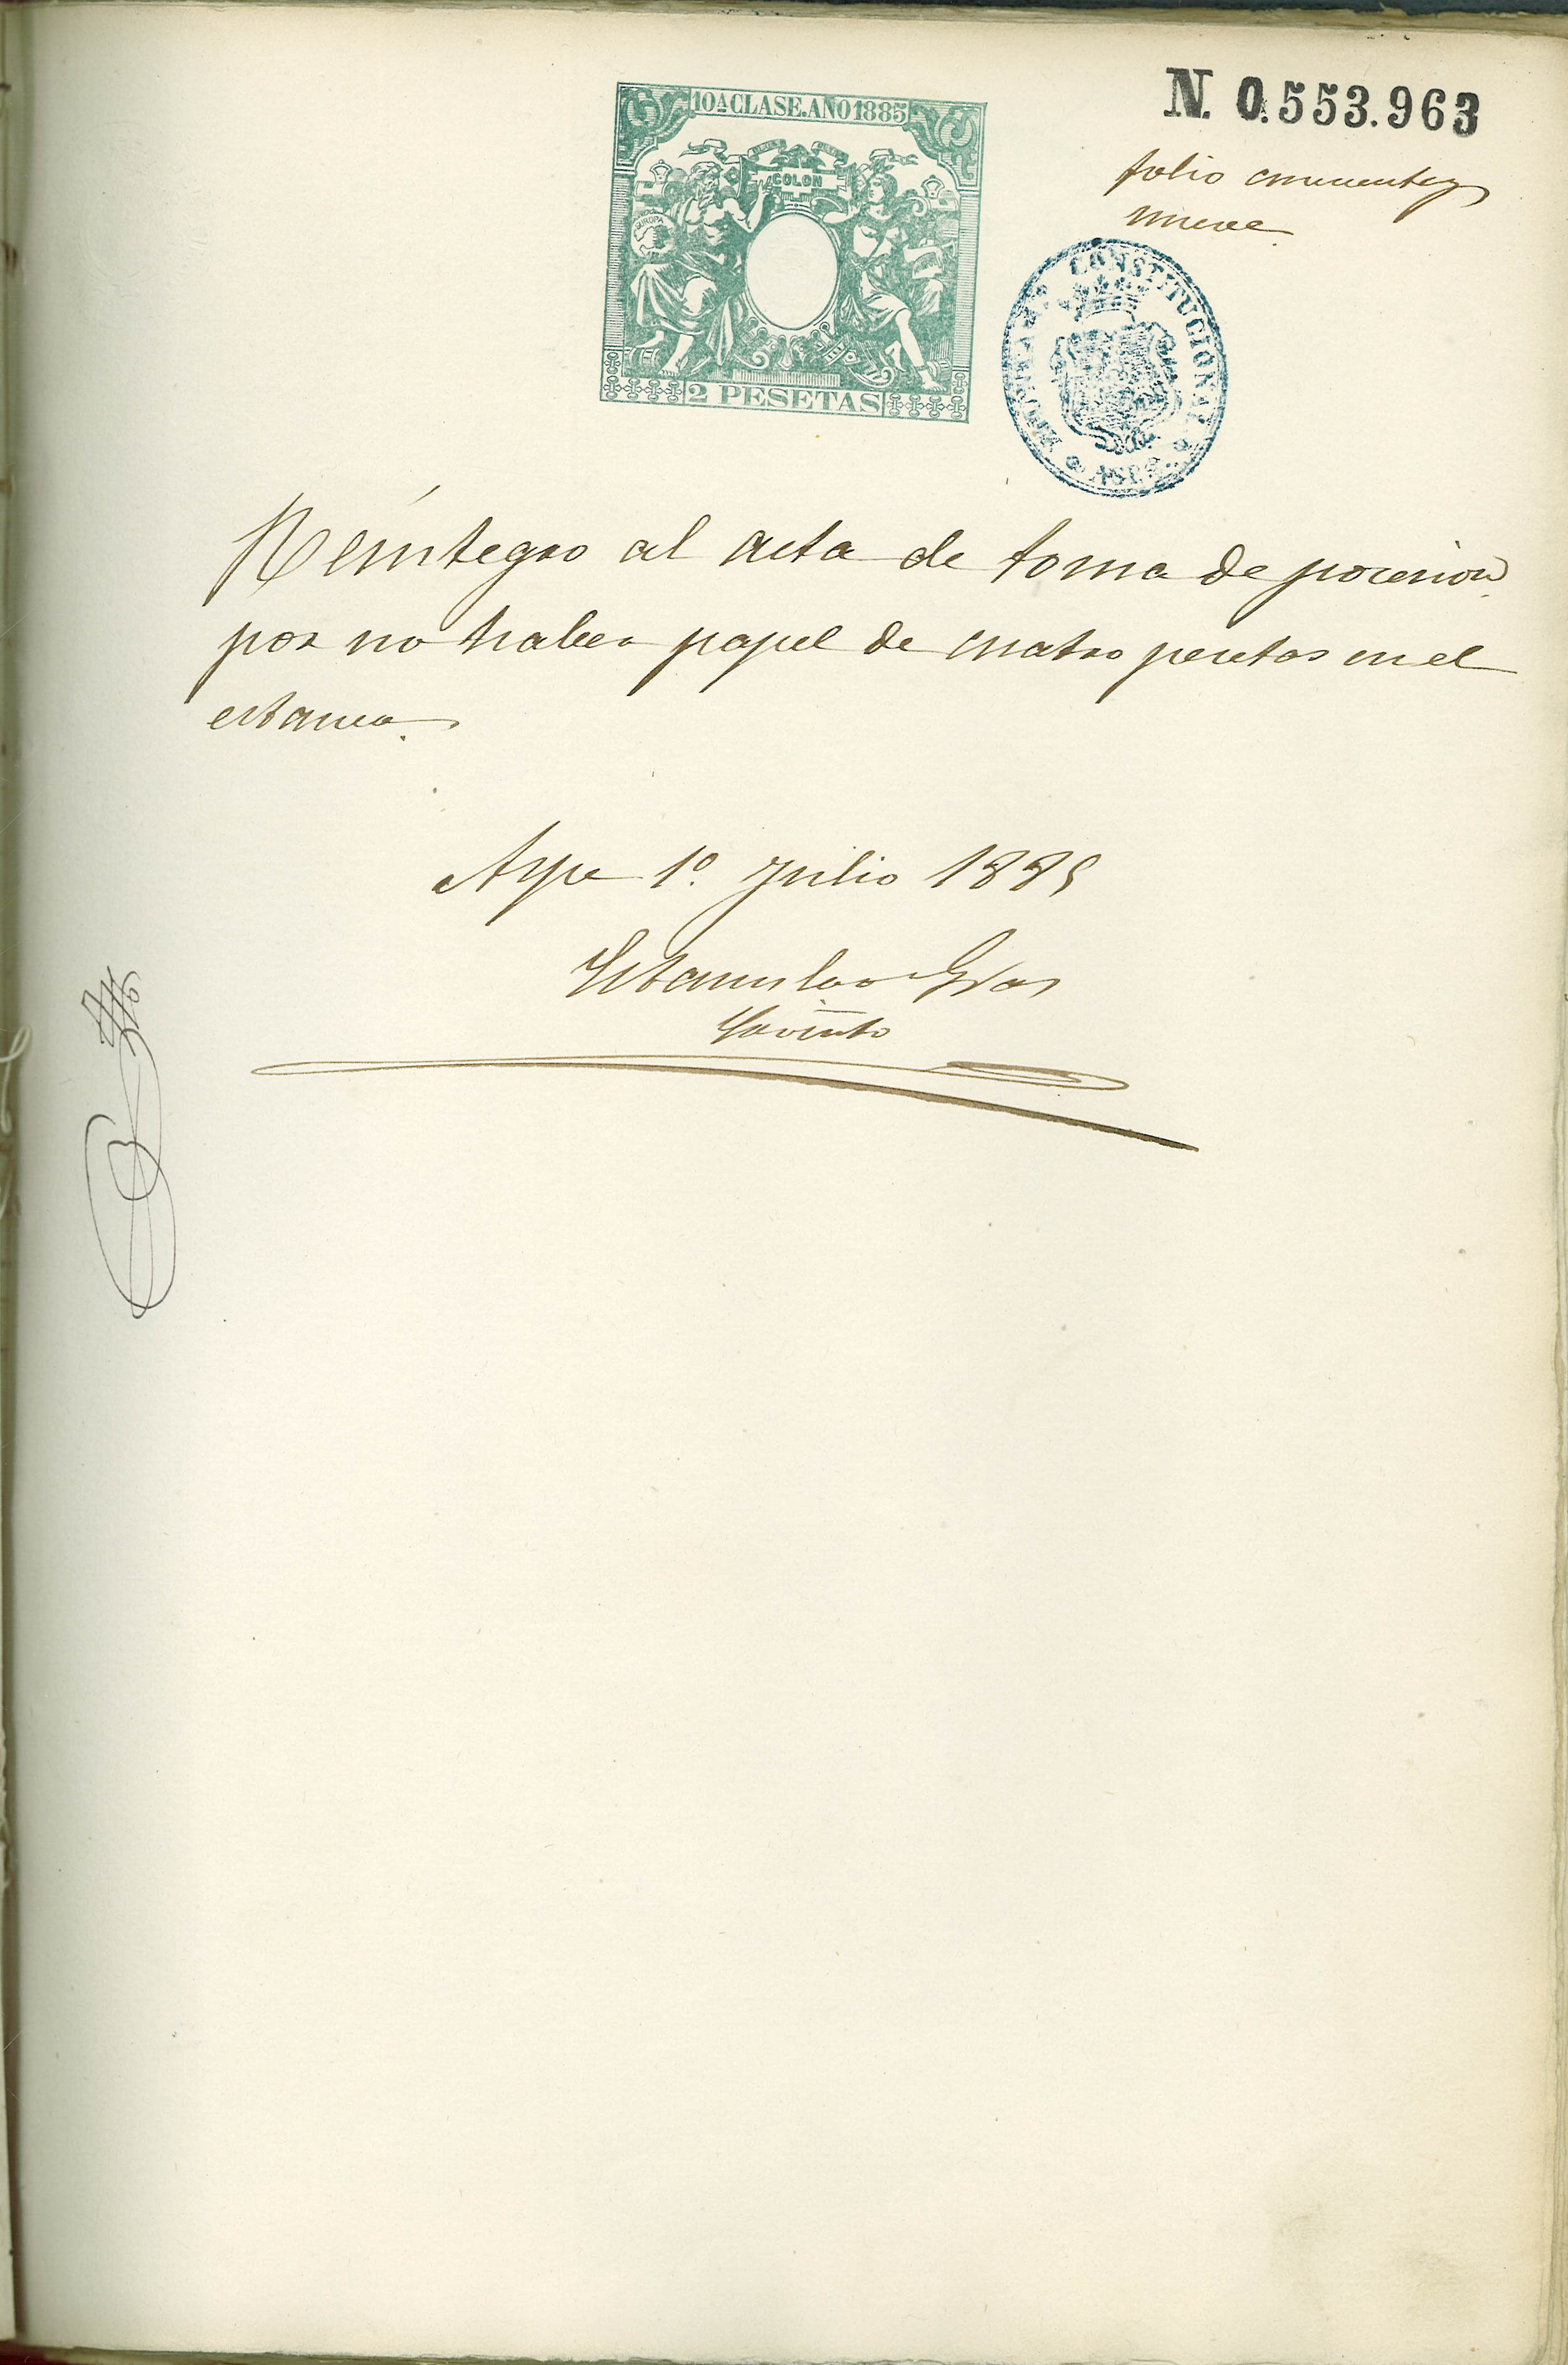 10ª CLASE. AÑO 1885
COLON
EUROPA
2 PESETAS
N. 0.553.963
folio cincuenta y
nueve
CONSTITUCIONAL
Reíntegro al acta de toma de pocesion
por no haber papel de cuatro pesetas en el
estanco.
Aspe 1º. Julio 1885
Estanislao Gras